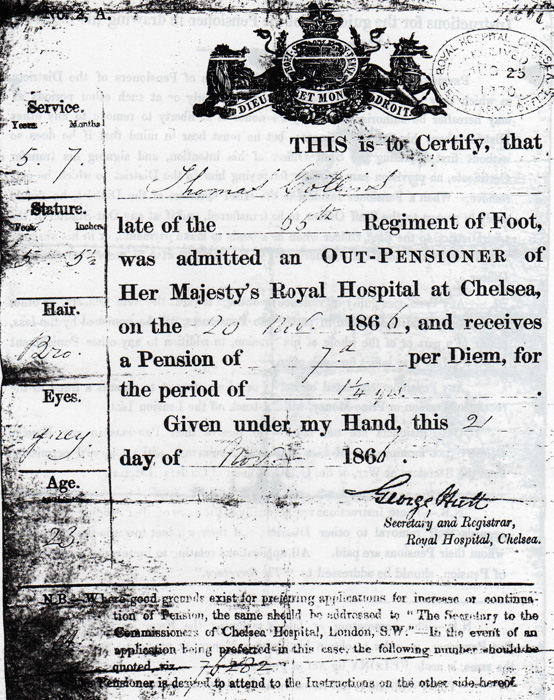 No. 2, A.
DIEU ET MON DROIT
ROYAL HOSPITAL CHELSEA
25
1870
Service.
Years. Months
5 7
Stature.
Feet. Inches.
5 5½
Hair.
Bro.
Eyes.
grey
Age.
23
THIS is to Certify, that
Thomas Collins
late of the 65th Regiment of Foot,
was admitted an OUT-PENSIONER of
Her Majesty's Royal Hospital at Chelsea,
on the 20 Nov. 1866, and receives
a Pension of 7d per Diem, for
the period of 1¼ yrs.
Given under my Hand, this 21
day of Nov. 1866
George Hutt
Secretary and Registrar,
Royal Hospital, Chelsea.
N.B.—Where good grounds exist for preferring applications for increase or continua-
tion of Pension, the same should be addressed to "The Secretary to the
Commissioners of Chelsea Hospital, London, S.W."—In the event of an
application being preferred in this case, the following number should be
quoted, viz.
The Pensioner is desired to attend to the Instructions on the other side hereof.